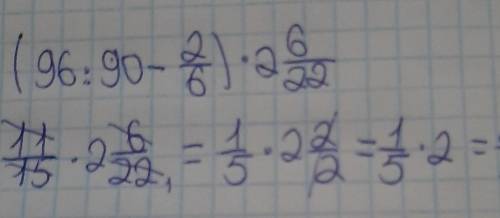 (96:90-2/6)·2 6/22
11/15·2 6/22, =1/5·2 2/2=1/5·2=